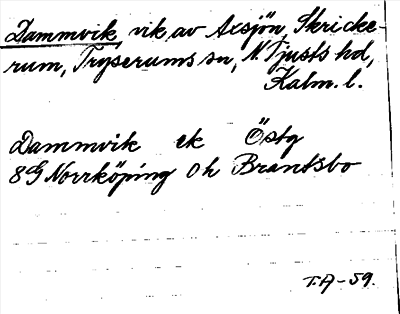 Dammvik, vik av Axsjön, Skricke-
rum, Tryserums sn, N. Tjusts hd,
Kalm. l.
Dammvik ek Östg
8G Norrköping 0h Brantsbo
T.A-59.